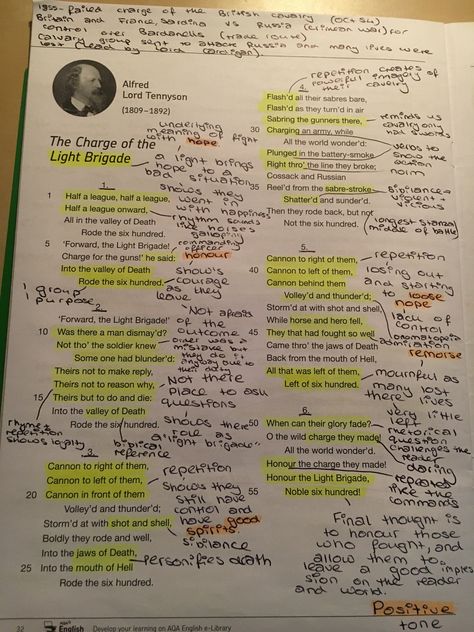 1855- failed charge of the British cavalry (Oct 54)
Britain and France, Sardina vs Russia (Crimean war) for
control over Dardanells (trade route)
calvary group sent to attack Russia and many lives were
lost (lead by Lord Cardigan).
Alfred
Lord Tennyson
(1809–1892)
The Charge of the
Light Brigade
underlying
meaning of fight
with hope.
a light brings
hope to a
bad situation
1.
1 Half a league, half a league,
Half a league onward,
All in the valley of Death
Rode the six hundred.
5 'Forward, the Light Brigade!
Charge for the guns!' he said:
Into the valley of Death
Rode the six hundred.
shows they
went in
with happiness
rhythm sounds
like horses
galloping
commanding
officer
honour
shows
courage
as they
leave
1 group
1 purpose
2
'Forward, the Light Brigade!'
10 Was there a man dismay'd?
Not tho' the soldier knew
Some one had blunder'd:
Theirs not to make reply,
Theirs not to reason why,
15 Theirs but to do and die:
Into the valley of Death
Rode the six hundred.
Not afraid
of the
outcome
order was a
mistake but
they do it
anyway due to
their duty
Not there
place to ask
questions
shows there
a whole as
"light brigade"
rhyme +
repetition
shows loyalty
biblical
reference
3
Cannon to right of them,
Cannon to left of them,
20 Cannon in front of them
Volley'd and thunder'd;
Storm'd at with shot and shell,
Boldly they rode and well,
Into the jaws of Death,
25 Into the mouth of Hell
Rode the six hundred.
repetition
Shows they
still have
control and
have good
spirits.
sibilance
personifies death
repetition creates
powerful imagery
their cavalry
4.
Flash'd all their sabres bare,
Flash'd as they turn'd in air
Sabring the gunners there,
30 Charging an army, while
All the world wonder'd:
Plunged in the battery-smoke
Right thro' the line they broke;
Cossack and Russian
35 Reel'd from the sabre-stroke
Shatter'd and sunder'd.
Then they rode back, but not
Not the six hundred.
reminds us
cavalry only
had swords
verbs to
show the
action
sibilance
violent +
vicious
longest stanza
middle of battle
5.
Cannon to right of them,
40 Cannon to left of them,
Cannon behind them
Volley'd and thunder'd;
Storm'd at with shot and shell,
While horse and hero fell,
45 They that had fought so well
Came thro' the jaws of Death
Back from the mouth of Hell,
All that was left of them,
Left of six hundred.
repetition
losing out
and starting
to loose
hope
lack of
control
onomatopoeia
admiration
remorse
mournful as
many lost
there lives
very little
left
6
50 When can their glory fade?
O the wild charge they made!
All the world wonder'd.
Honour the charge they made!
Honour the Light Brigade,
55 Noble six hundred!
rhetorical
question
challenges the
reader
daring
repeated
like the
commands
Final thought is
to honour those
who fought, and
allow them to
leave a good impres
sion on the reader
and world.
Positive
tone
32 AQA English Develop your learning on AQA English e-Library